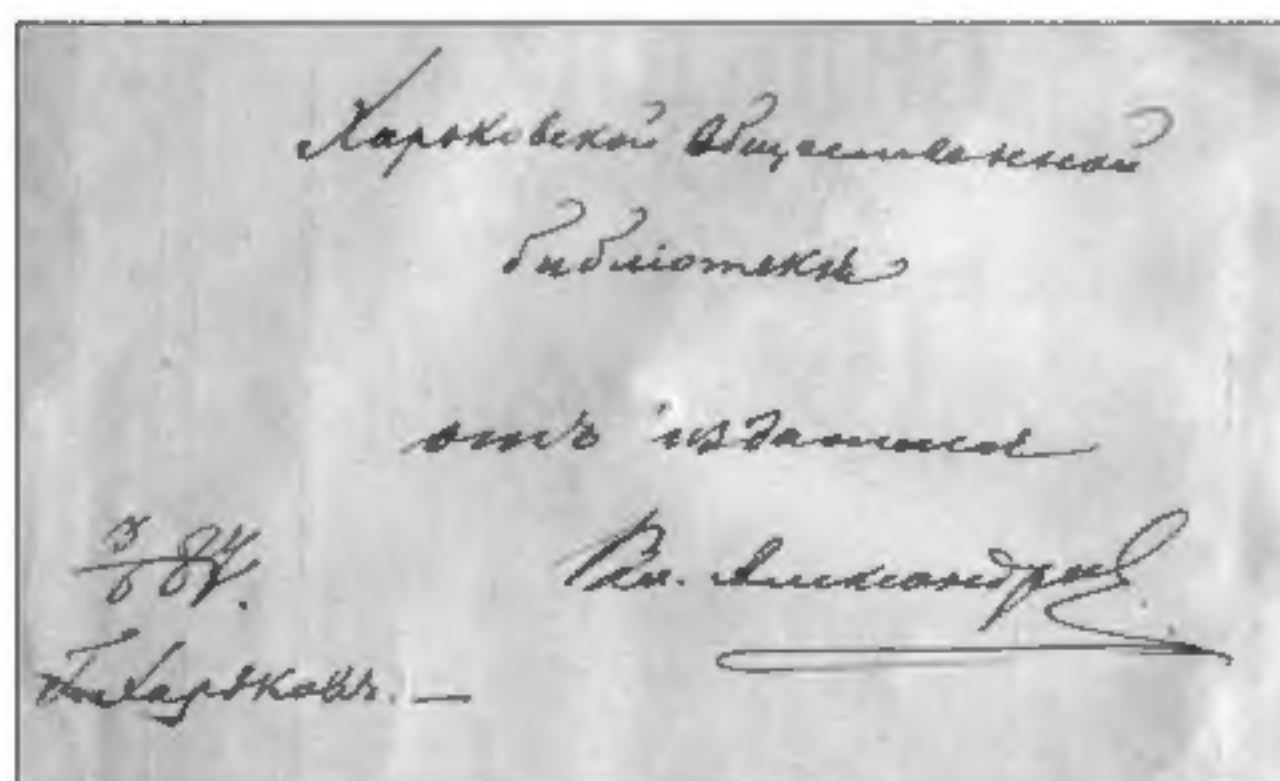 Харьковской Общественной
библіотекѣ
отъ издателя
Вл. Александровъ
3/6 87 г.
Г. Харьковъ. —